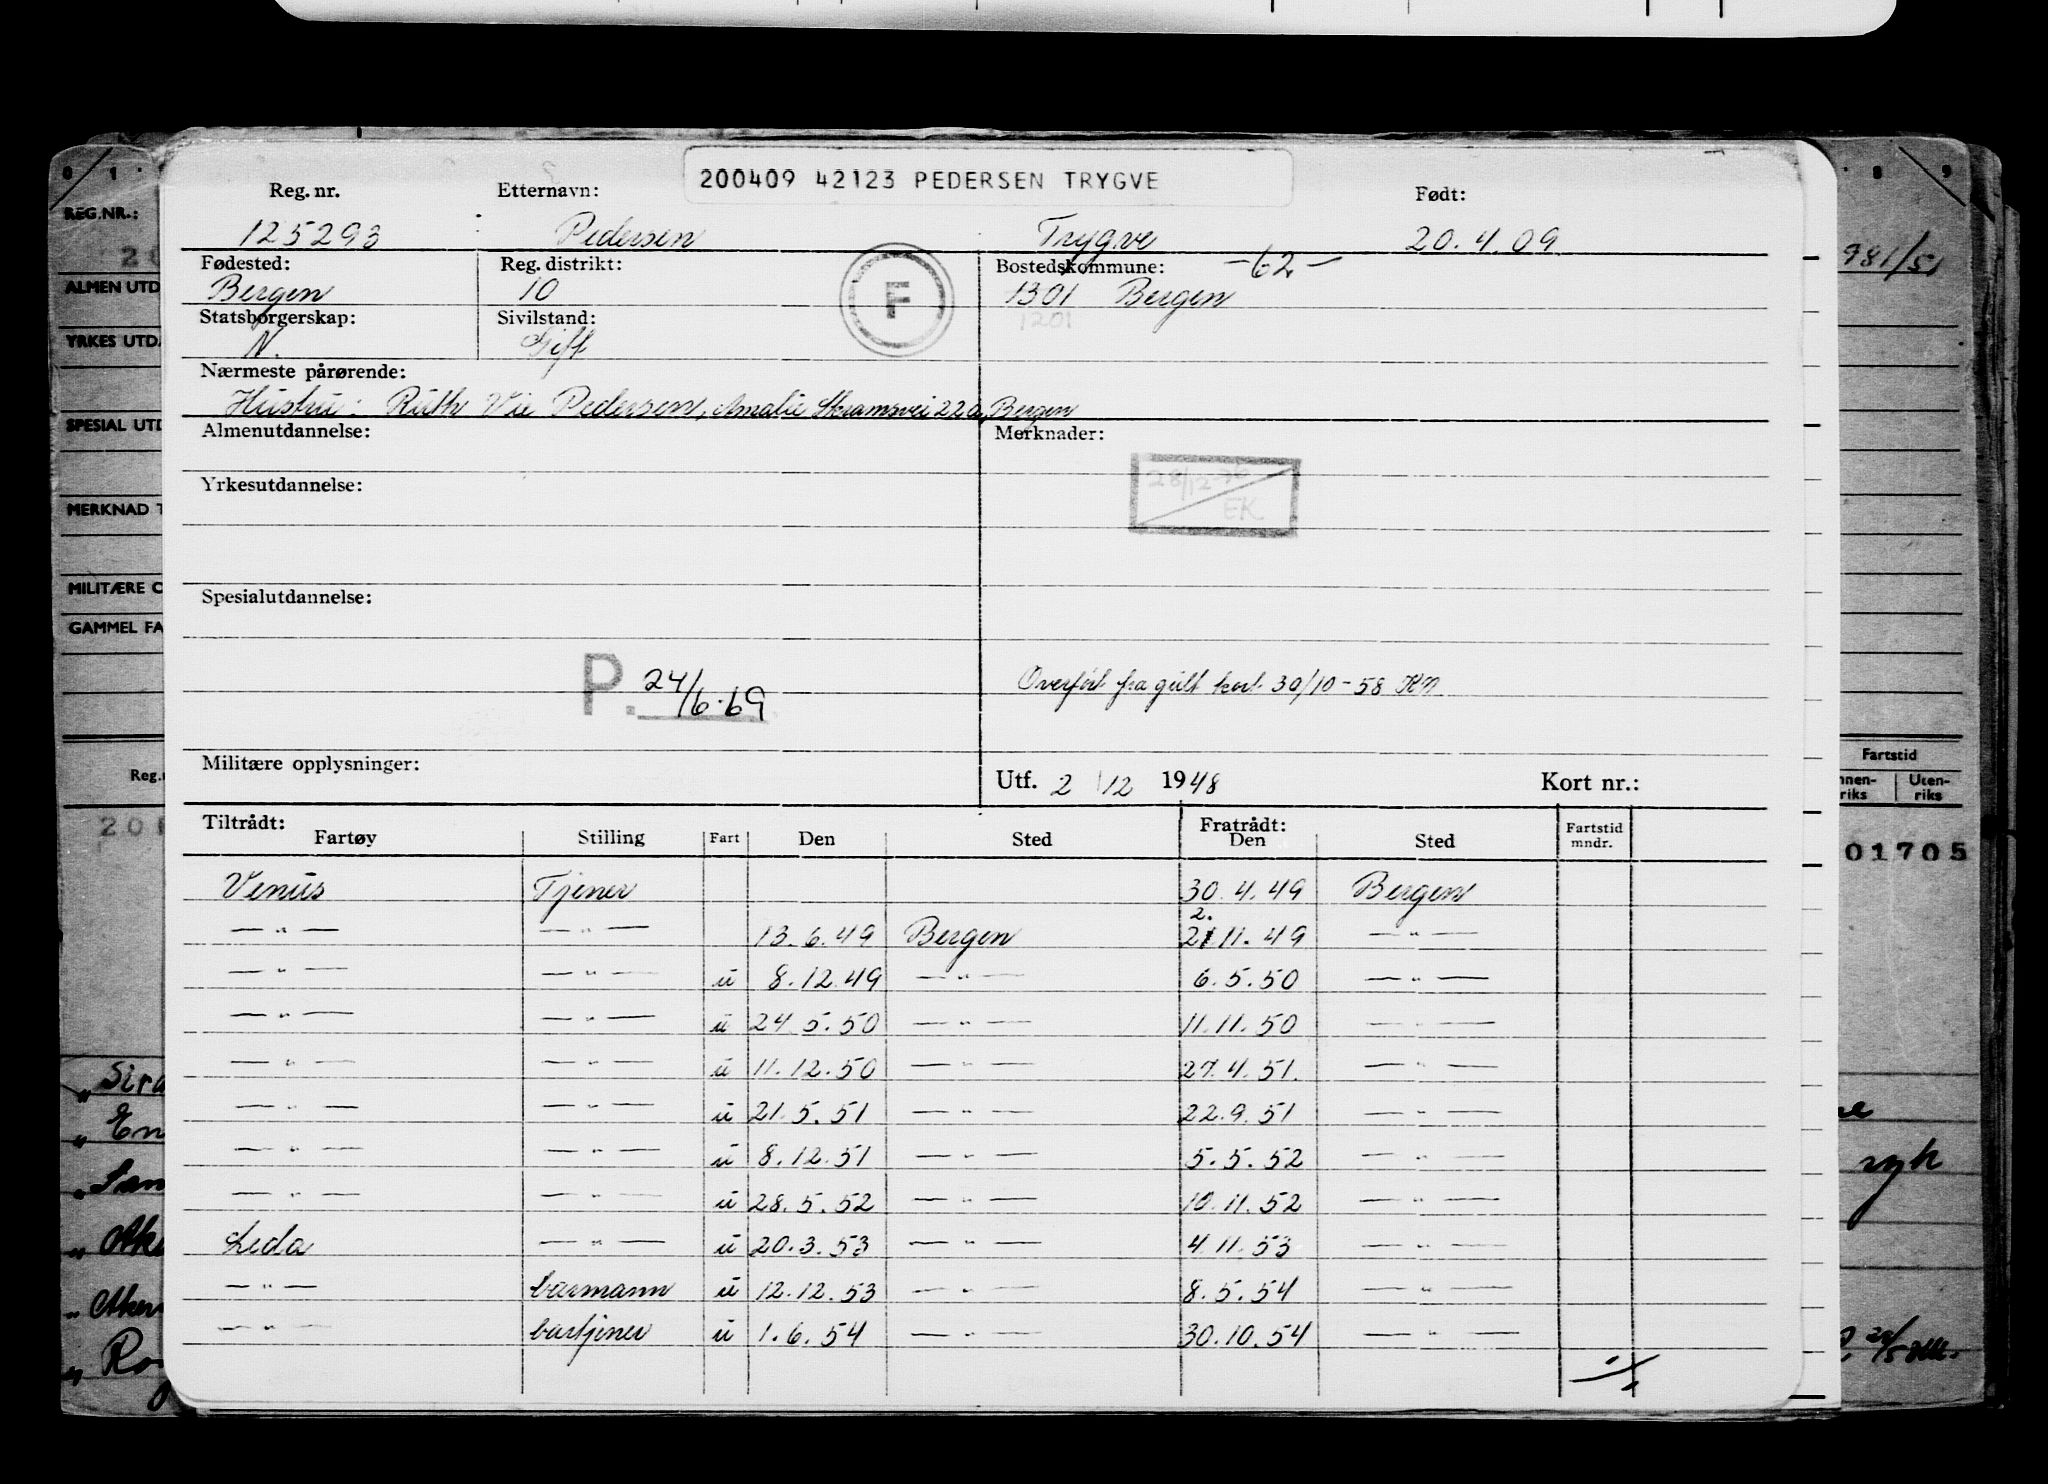 200409 42123 PEDERSEN TRYGVE
Reg. nr. Etternavn: Født:
125293 Pedersen Trygve 20.4.09
Fødested: Reg. distrikt: Bostedskommune: -62-
Bergen 10 1301 Bergen
F
Statsborgerskap: Sivilstand: 1201
N. Gift
Nærmeste pårørende:
Hustru: Ruth Vie Pedersen, Amalie Skramsvei 22a, Bergen
Almenutdannelse: Merknader:
28/12-70
EK
Yrkesutdannelse:
Spesialutdannelse:
P. 24/6.69
Overført fra gult kort 30/10-58 KN
Militære opplysninger: Utf. 2/12 1948 Kort nr.:
Tiltrådt: Fratrådt: Fartstid
Fartøy Stilling Fart Den Sted Den Sted mndr.
Venus Tjener 30.4.49 Bergen
2.
—"— —"— 13.6.49 Bergen 21.11.49 —"—
—"— —"— u 8.12.49 —"— 6.5.50 —"—
—"— —"— u 24.5.50 —"— 11.11.50 —"—
—"— —"— u 11.12.50 —"— 27.4.51. —"—
—"— —"— u 21.5.51 —"— 22.9.51 —"—
—"— —"— u 8.12.51 —"— 5.5.52 —"—
—"— —"— u 28.5.52 —"— 10.11.52 —"—
Leda —"— u 20.3.53 —"— 4.11.53 —"—
—"— barmann u 12.12.53 —"— 8.5.54 —"—
—"— bartjener u 1.6.54 —"— 30.10.54 —"—
REG.NR.:
ALMEN UTD
YRKES UTD.
SPESIAL UTD
MERKNAD T
MILITÆRE O
GAMMEL FA
Reg.
201
981/51
Fartstid
nnen-riks Uten-riks
01705